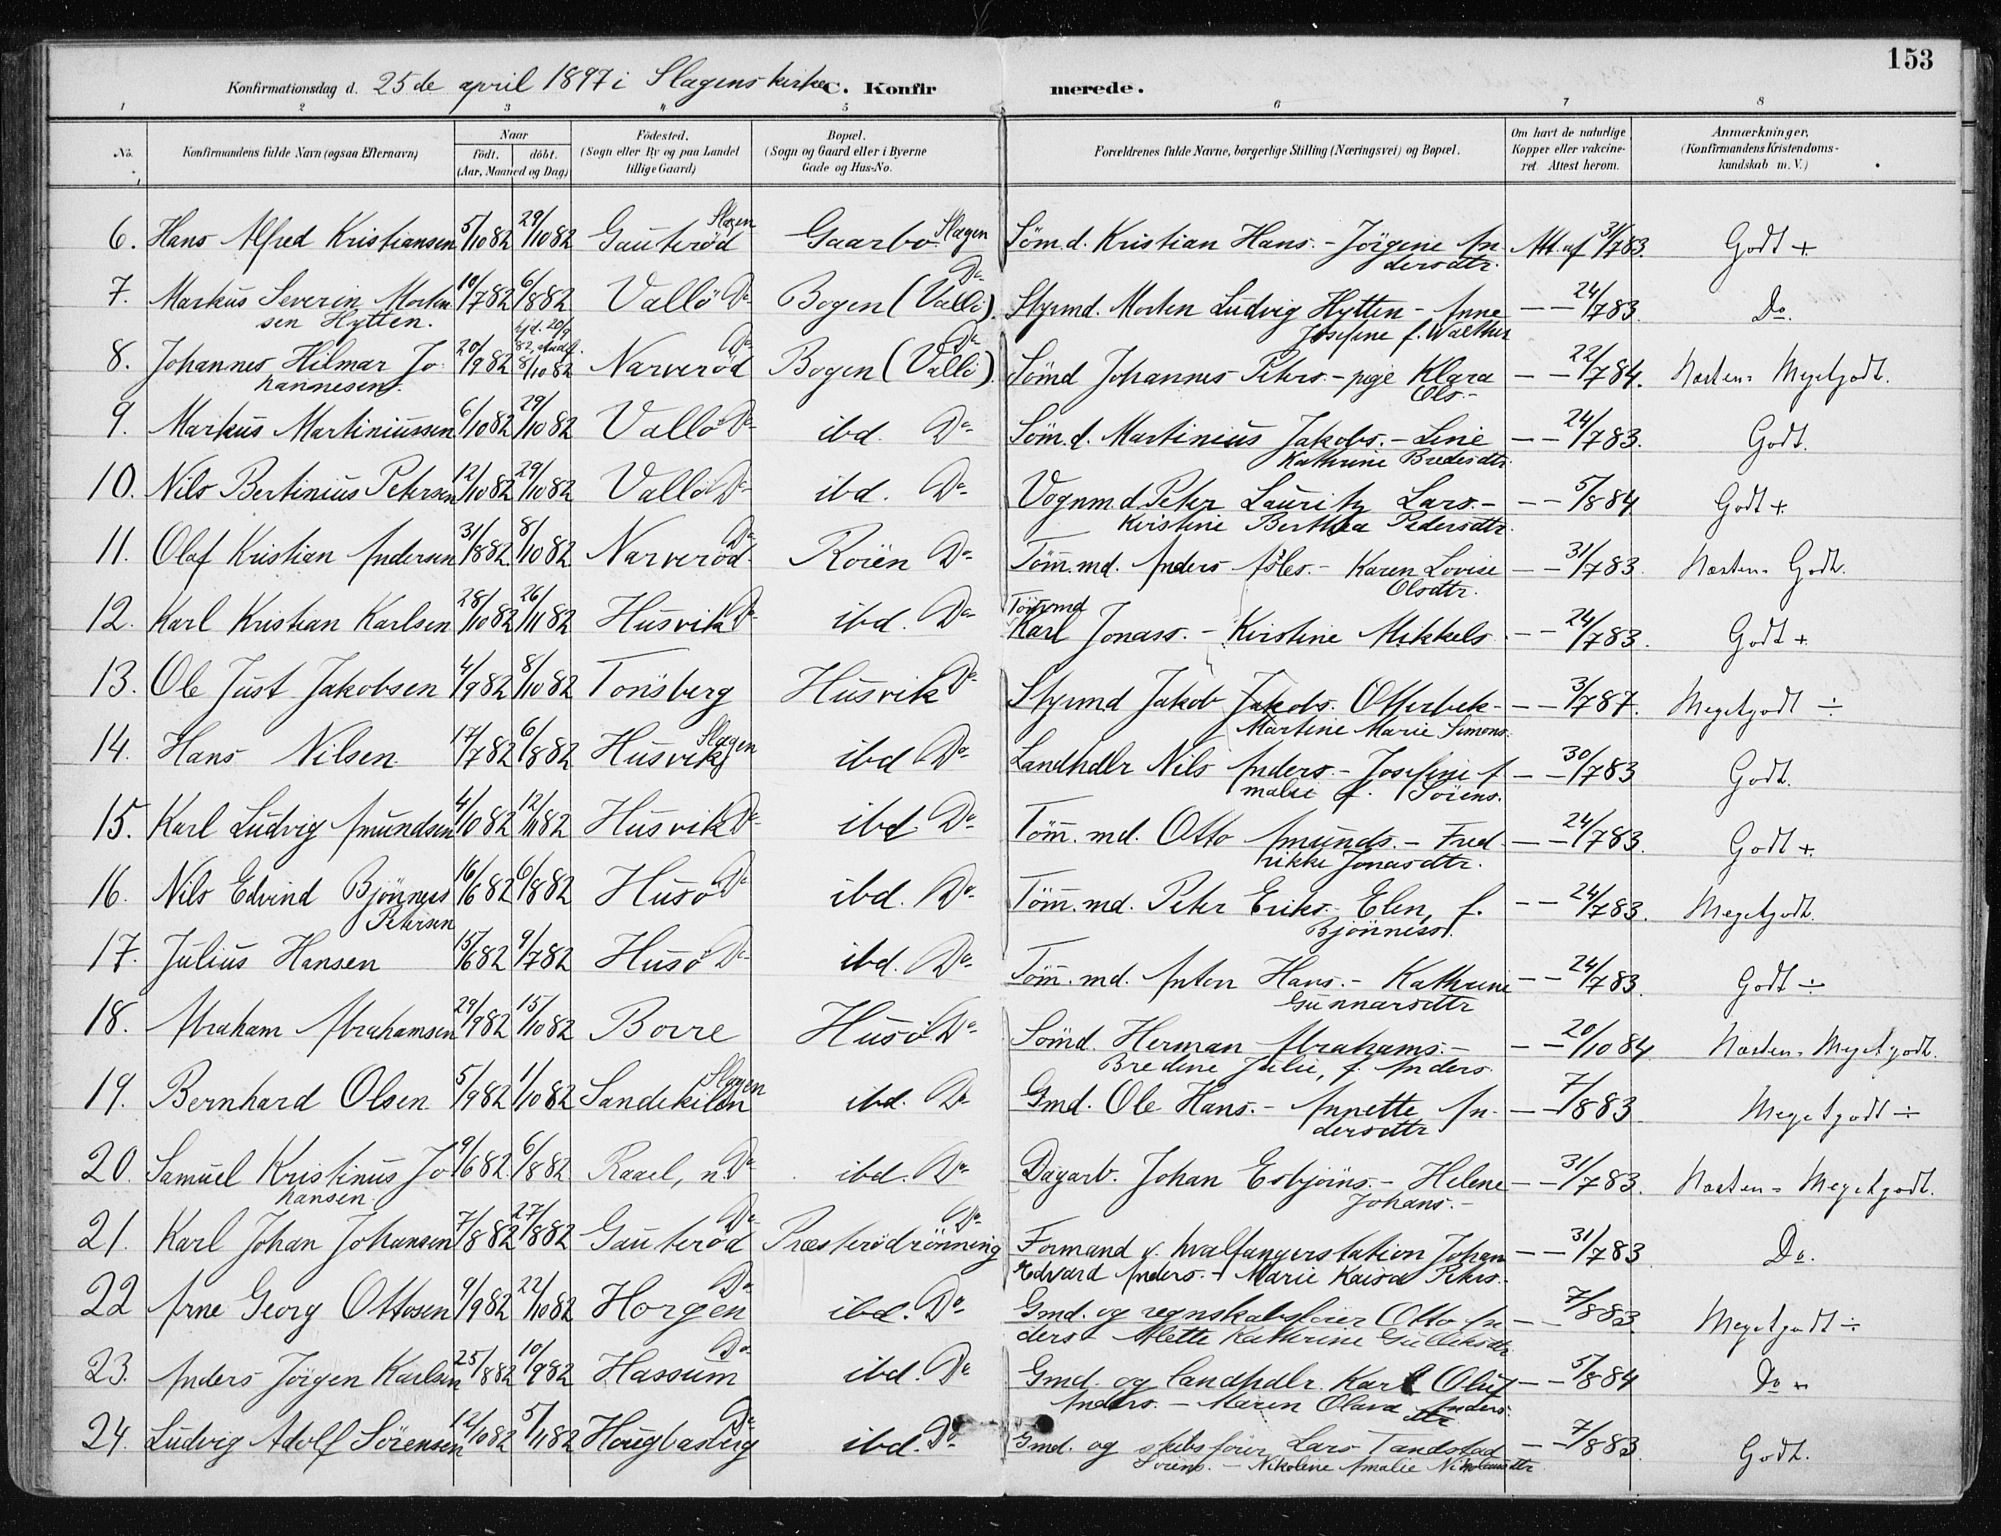 153
Konfirmationsdag d. 25de april 1897 i Slagens kirke C. Konfirmerede.
1 2 3 4 5 6 7 8
No. Konfirmandens fulde Navn (ogsaa Efternavn) Naar född. döbt. (Aar, Maaned og Dag) Födested. (Sogn eller By og paa Landet tillige Gaard) Bopæl. (Sogn og Gaard eller i Byerne Gade og Hus-No. Forældrenes fulde Navne, borgerlige Stilling (Næringsvei) og Bopæl. Om havt de naturlige Kopper eller vakcineret. Attest herom. Anmærkninger. (Konfirmandens Kristendomskundskab m. V.)
6. Hans Alfred Kristiansen 5/10 82 29/10 82 Gauteröd Slagen Gaarbo Slagen Söm.d. Kristian Hans. - Jörgine Andersdtr. Att. af 31/7 83. Godt +
7. Markus Severin Mortensen Hytten. 10/7 82 6/8 82 Vallö Do Bogen (Vallö). Do Styrmd. Morten Ludvig Hytten - Anne Josefine f. Walther — — 24/7 83. Do.
8. Johannes Hilmar Johannesen. 20/9 82 8/10 82 Narveröd Do Bogen (Vallö). Do Sömd Johannes Peters. - pige Klara Ols. — — 22/7 84. Næsten = Megetgodt.
9. Markus Martiniussen 6/10 82 29/10 82 Vallö Do ibd. Do Söm.d. Martinius Jakobs. - Line Kathrine Bredesdtr. — — 24/7 83. Godt.
10. Nils Bertinius Petersen 12/10 82 29/10 82 Vallö Do ibd. Do Vognmd. Peter Lauritz Lars. - Kirstine Berthea Pedersdtr. — — 5/8 84. Godt +
11. Olaf Kristian Andersen 31/8 82 8/10 82 Narveröd. Do Roien Do Töm.md. Anders Asles. - Karen Lovise Olsdtr. — — 31/7 83. Næsten = Godt.
12. Karl Kristian Karlsen 28/10 82 26/11 82 Husvik Do ibd. Do Tömmd Karl Jonass. - Kirstine Mikkels. — — 24/7 83. Godt +
13. Ole Just Jakobsen 4/9 82 8/10 82 Tonsberg Husvik Do Styrmd Jakob Jakobs. Otterbek - Martine Marie Simons. — — 3/7 87. Megetgodt ÷
14. Hans Nilsen 17/7 82 6/8 82 Husvik Slagen ibd Do Landhdlr Nils Anders. - Josefine Amalie f. Sörens. — — 30/7 83 Godt.
15. Karl Ludvig Amundsen 4/10 82 12/11 82 Husvik Do ibd. Do Töm. md. Otto Amunds. - Fredrikke Jonasdtr. — — 24/7 83. Godt +
16. Nils Edvind Bjönnes Petersen 16/6 82 6/8 82 Husö Do ibd. Do Töm. md. Peter Eriks. - Elen, f. Bjönness. — — 24/7 83. Megetgodt.
17. Julius Hansen 15/6 82 9/7 82 Husö Do ibd. Do Töm. md. Anton Hans. - Kathrine Gunnarsdtr — — 24/7 83. Godt ÷
18. Abraham Abrahamsen 29/9 82 15/10 82 Borre Husö Do Sömd. Herman Abrahams. - Bredine Julie, f. Anders. — — 20/10 84 Næsten = Megetgodt.
19. Bernhard Olsen 5/9 82 1/10 82 Sandekilen Slagen ibd. Do Gmd. Ole Hans. - Annette Andersdtr — — 7/8 83 Megetgodt ÷
20. Samuel Kristinus Johansen. 9/6 82. 6/8 82 Raael, n. Do ibd. Do Dagarb. Johan Esbjöins. - Helene Johans. — — 31/7 83. Næsten = Megetgodt.
21. Karl Johan Johansen 7/8 82 27/8 82 Gauteröd Do Præsterödrönning Do Formand v. hvalfangerstation Johan Edvard Anders. - Marie Kaisa Peters. — — 31/7 83 Do.
22 Arne Georg Ottosen 9/9 82 22/10 82 Horgen Do ibd. Do Gmd. og regnskabsförer Otto Anders - Mette Kathrine Gulleksdtr — — 7/8 83. Megetgodt ÷
23. Anders Jörgen Karlsen 25/8 82 10/9 82 Hassum Do ibd. Do Gmd. og landhdlr. Karl Oluf Anders. - Maren Olava Andersdtr — — 5/8 84 Do
24. Ludvig Adolf Sörensen 12/10 82 5/11 82 Hougbasberg Do ibd. Do Gmd. og skibsförer Lars Tandstad Sörens. - Nikoline Amalie Nikolausdtr — — 7/8 83 Godt.